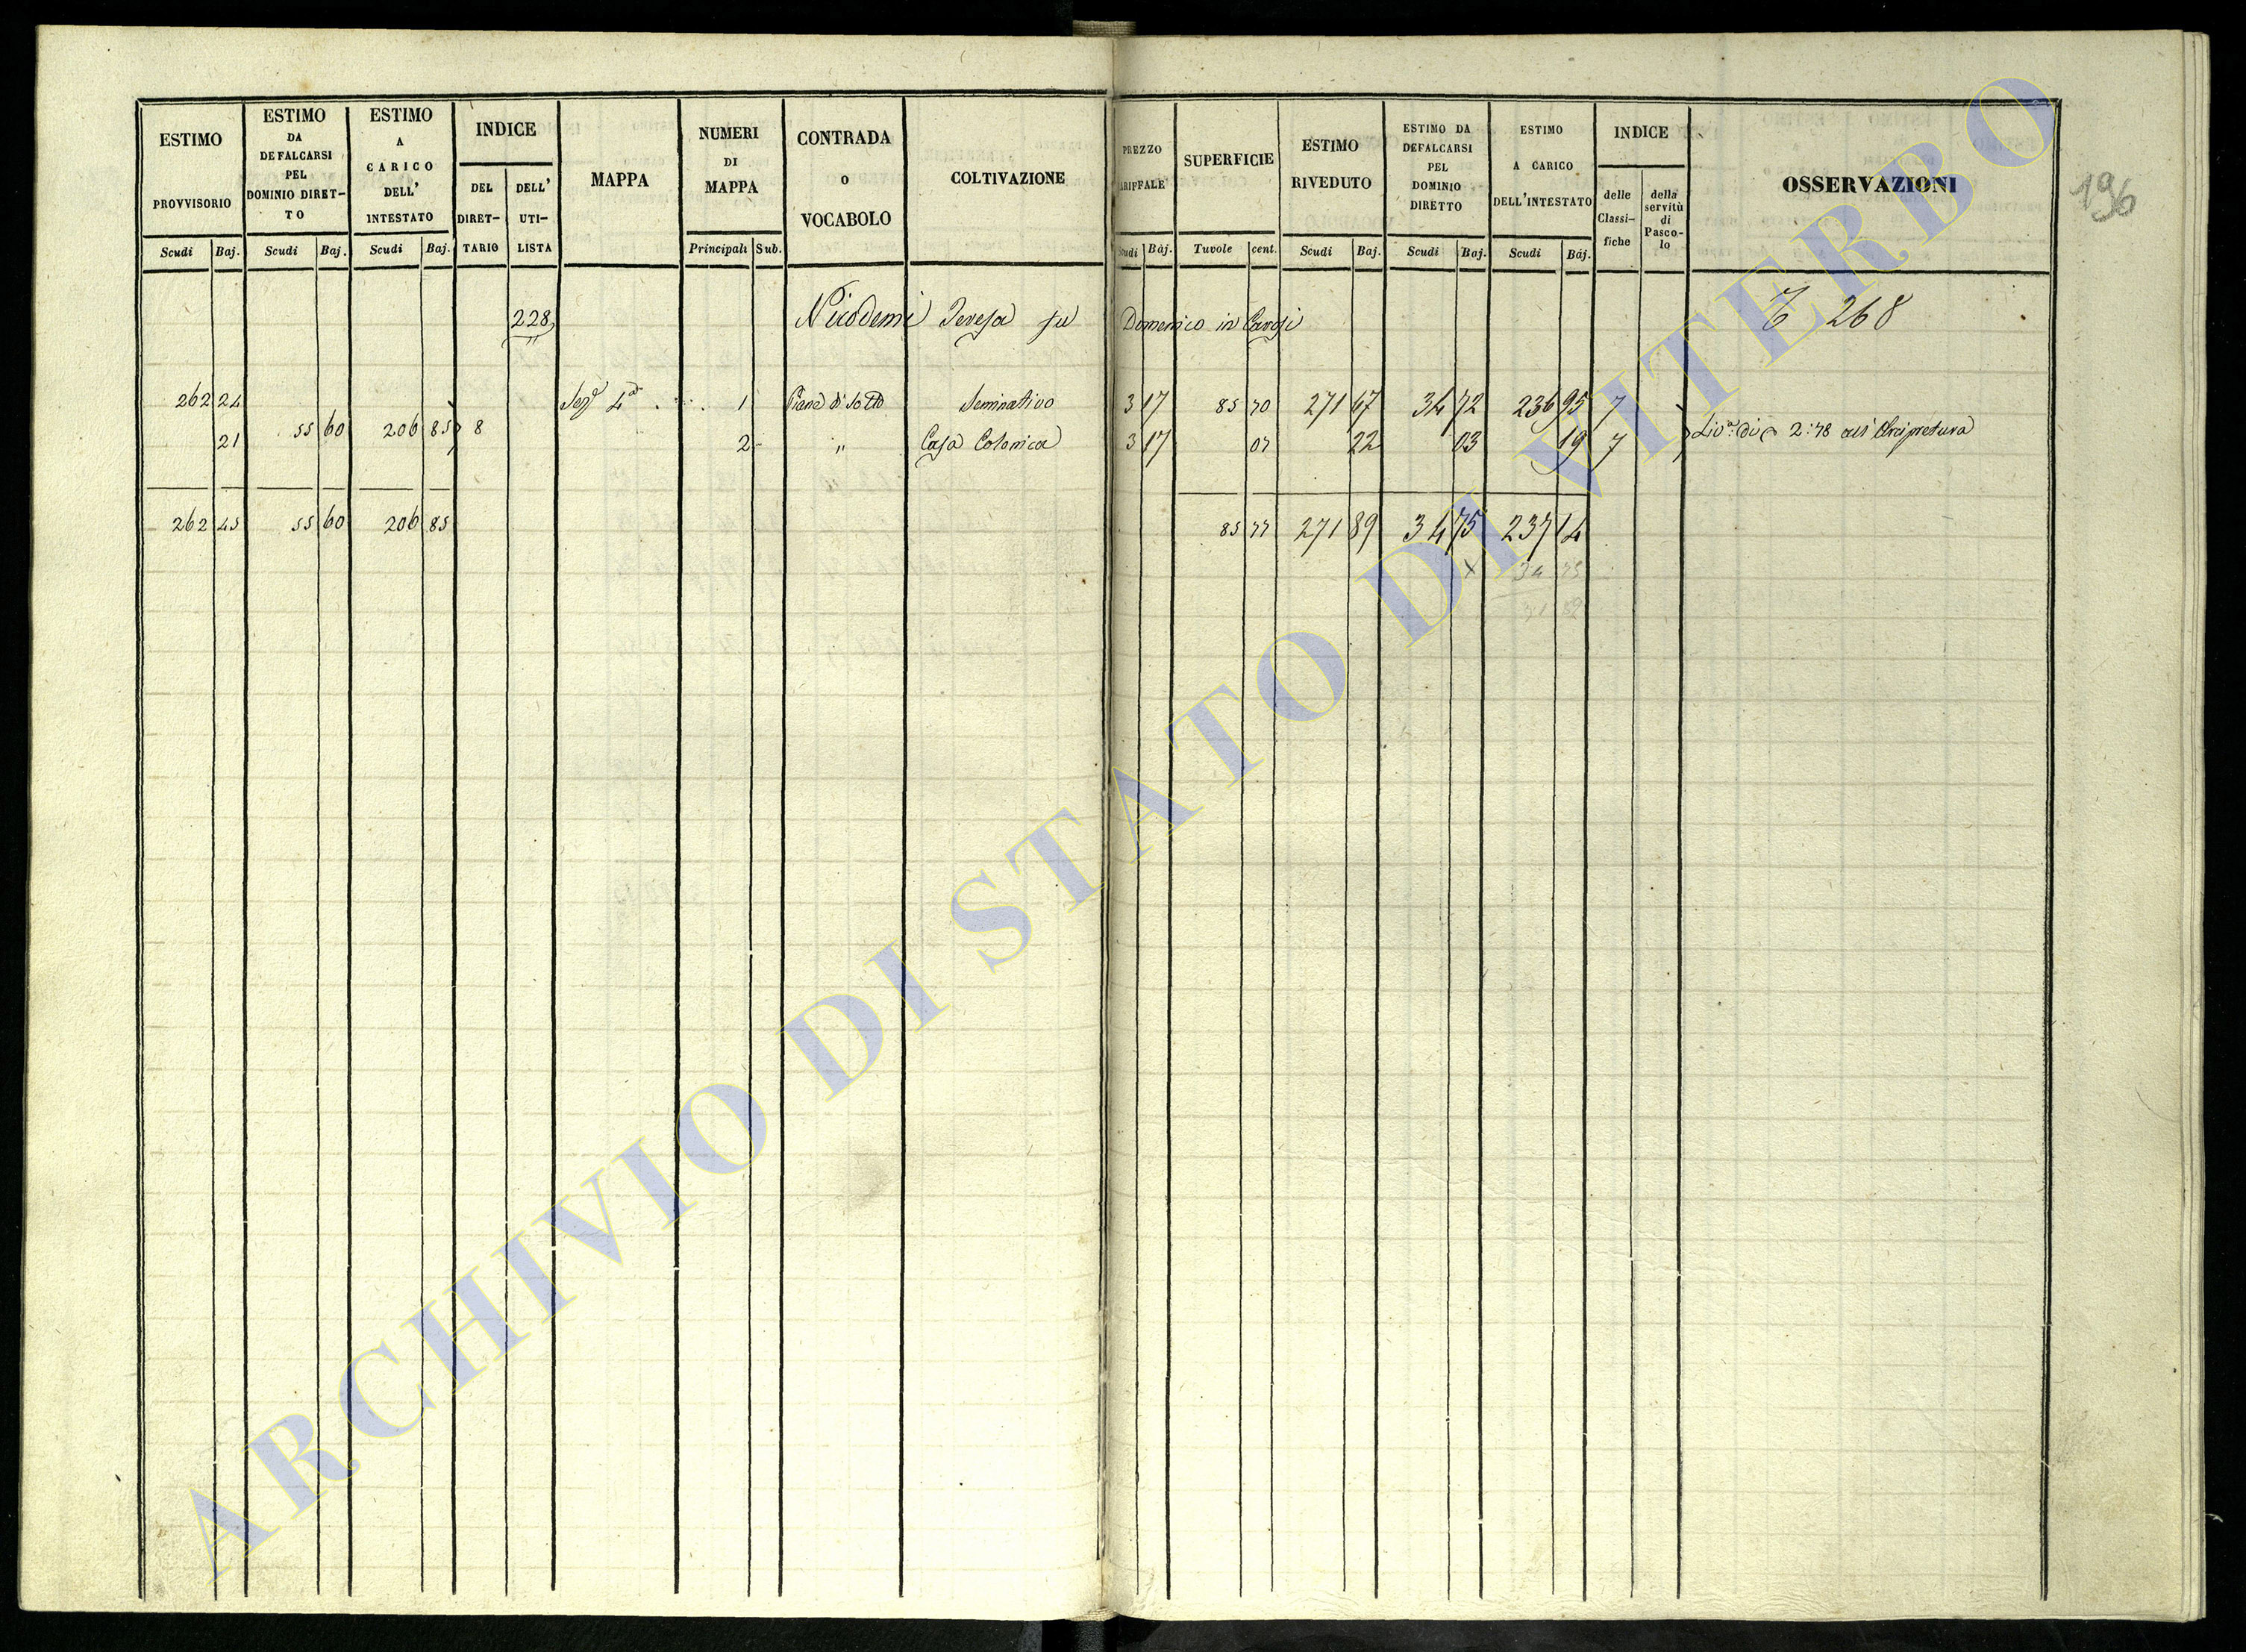 ESTIMO PROVVISORIO
ESTIMO DA DEFALCARSI PEL DOMINIO DIRET- TO
ESTIMO A CARICO DELL' INTESTATO
INDICE
DEL DIRET- TARIO
DELL' UTI- LISTA
MAPPA
NUMERI DI MAPPA
CONTRADA O VOCABOLO
COLTIVAZIONE
PREZZO
SUPERFICIE
ESTIMO RIVEDUTO
ESTIMO DA DEFALCARSI PEL DOMINIO DIRETTO
ESTIMO A CARICO DELL'INTESTATO
INDICE
delle Classi- fiche
della servitù di Pasco- lo
OSSERVAZIONI
196
Scudi Baj. Scudi Baj. Scudi Baj. Principali Sub. Baj. Tavole cent. Scudi Baj. Scudi Baj. Scudi Baj.
228 Nicodemi Teresa fu Domenico in 268
262 24 1 Piane di Sotto Seminativo 3 17 85 70 271 67 34 72 236 95 7
55 60 206 85 8
21 2 " Casa Colonica 3 17 07 22 03 19 7 2:78 all'Arcipretura
262 45 55 60 206 85 85 77 271 89 34 75 237 14
X 34 75
ARCHIVIO DI STATO DI VITERBO